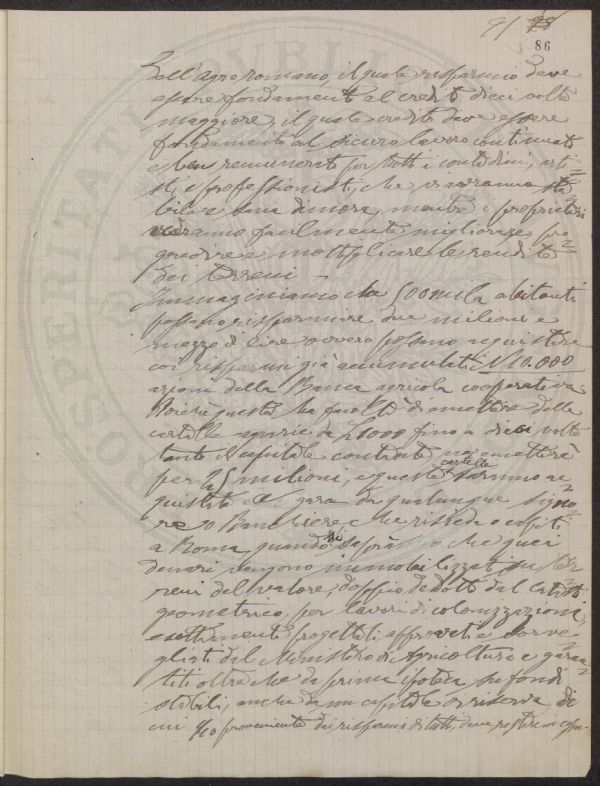 91 98
86
dell'agro romano, il quale risparmio deve
essere fondamento al credito dieci volte
maggiore, il quale credito deve essere
fondamento al sicuro lavoro continuato
e ben remunerato per tutti i contadini, arti
sti, e professionisti, che vi avranno sta
bile dimora, mentre i proprietari
vedranno facilmente migliorare, pro
gredire e moltiplicare le rendite
dei terreni —
Immaginiamo che 500 mila abitanti
possano risparmiare due milioni e
mezzo di lire ovvero possano acquistare
coi risparmi già accumulati N 10.000
azioni della Banca agricola cooperativa.
Poichè questa ha facoltà di emettere delle
cartelle agrarie da L 1000 fino a dieci volte
tanto il capitale contante ne emetterà
per 25 milioni, e queste cartelle saranno ac
quistate a gara da qualunque signo
re o Banchiere che risieda o capiti
a Roma quando si saprà che quei
denari vengono immobilizzati su ter
reni del valore, doppio dedotto dal catasto
geometrico, per lavori di colonizzazione,
esattamente progettati, approvati e sorve
gliati dal Ministero di Agricoltura e garan
titi oltre che da prima ipoteca su fondi
stabili, anche da un capitale di riserva, di
cui 1/10 proveniente dai risparmi di tutti, deve restare in cassa
PROSPERITATI PVBLI